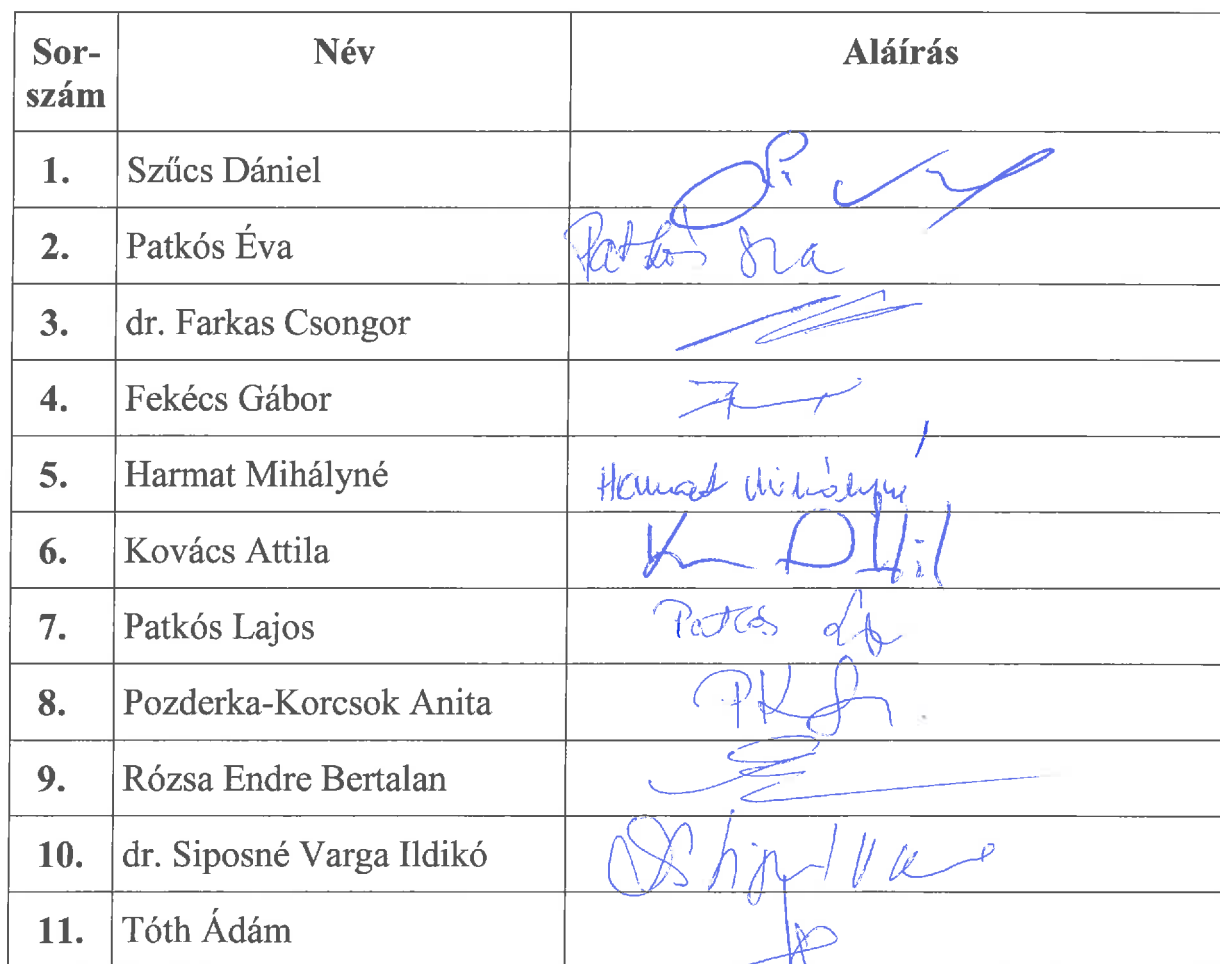 Sor-
szám Név Aláírás
1. Szűcs Dániel
2. Patkós Éva Patkós Éva
3. dr. Farkas Csongor
4. Fekécs Gábor
5. Harmat Mihályné Harmat Mihályné
6. Kovács Attila
7. Patkós Lajos Patkós
8. Pozderka-Korcsok Anita
9. Rózsa Endre Bertalan
10. dr. Siposné Varga Ildikó
11. Tóth Ádám